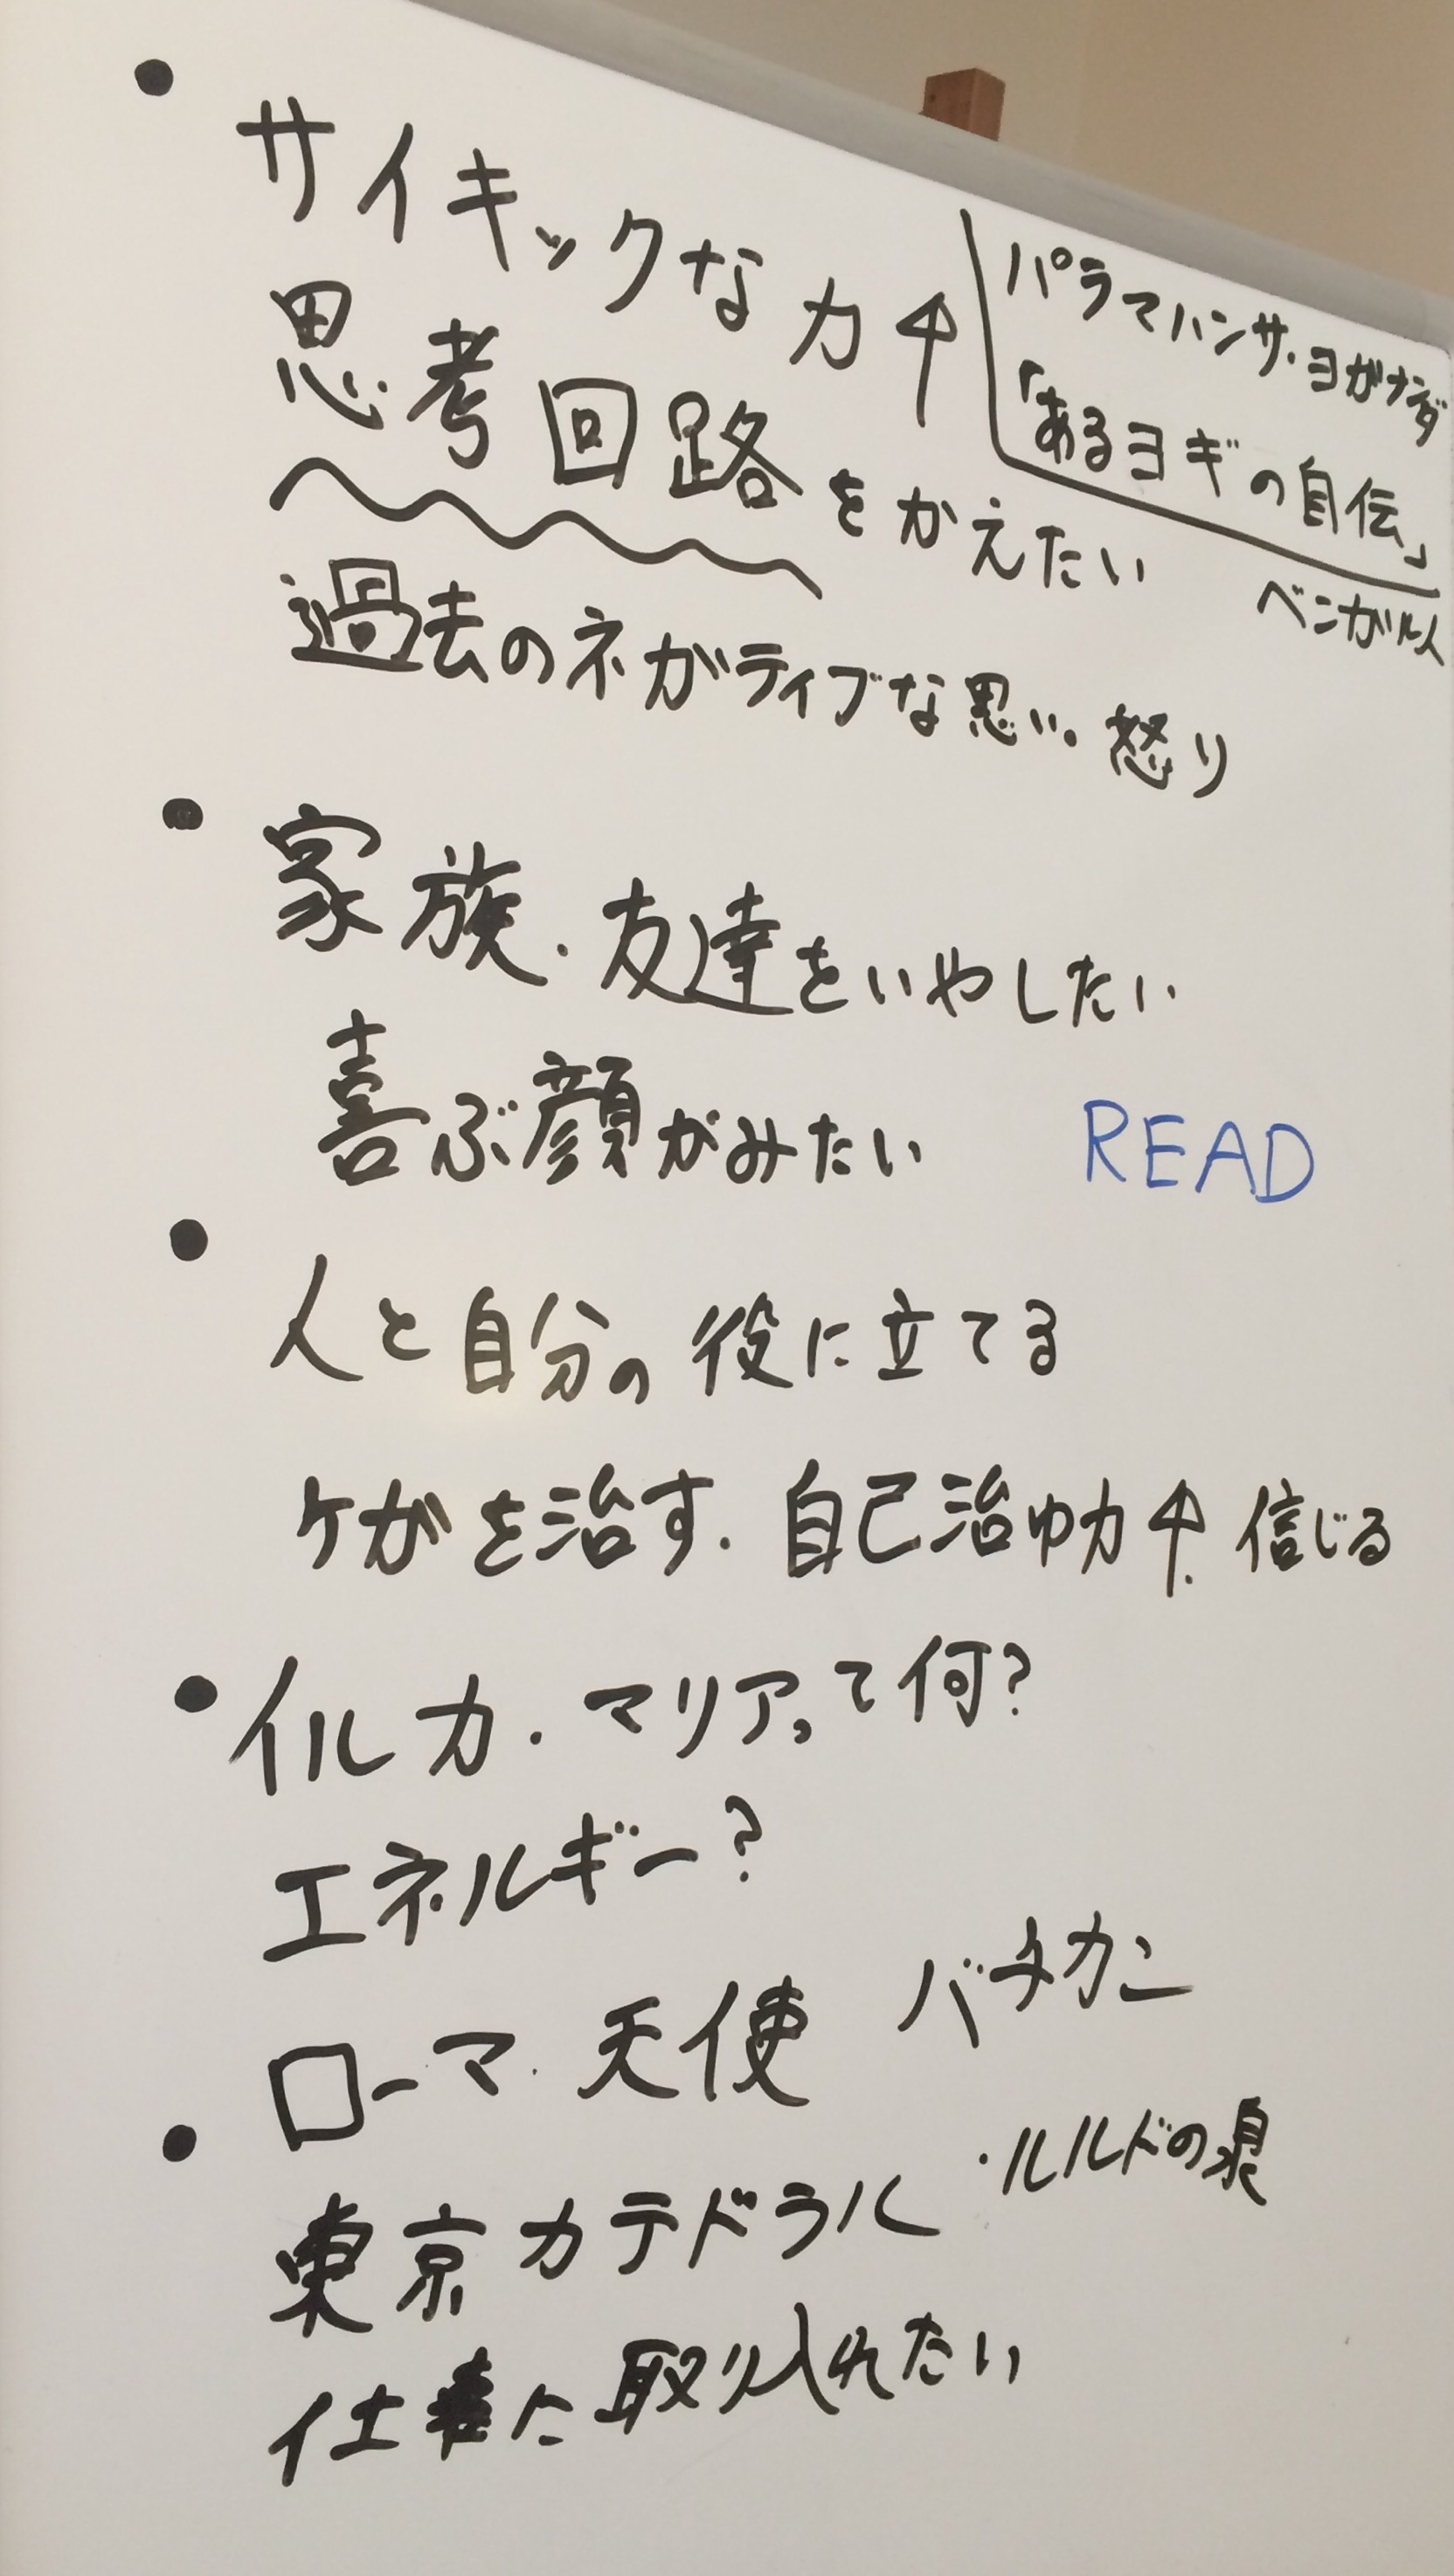 • サイキックな力↑
パラマハンサ・ヨガナンダ
「あるヨギの自伝」
ベンガル人
思考回路をかえたい
過去のネガティブな思い。怒り
• 家族・友達をいやしたい
喜ぶ顔がみたい
READ
• 人と自分の役に立てる
ケガを治す. 自己治ゆ力↑. 信じる
• イルカ・マリアって何?
エネルギー?
ローマ. 天使 バチカン
・ルルドの泉
• 東京カテドラル
仕事に取り入れたい